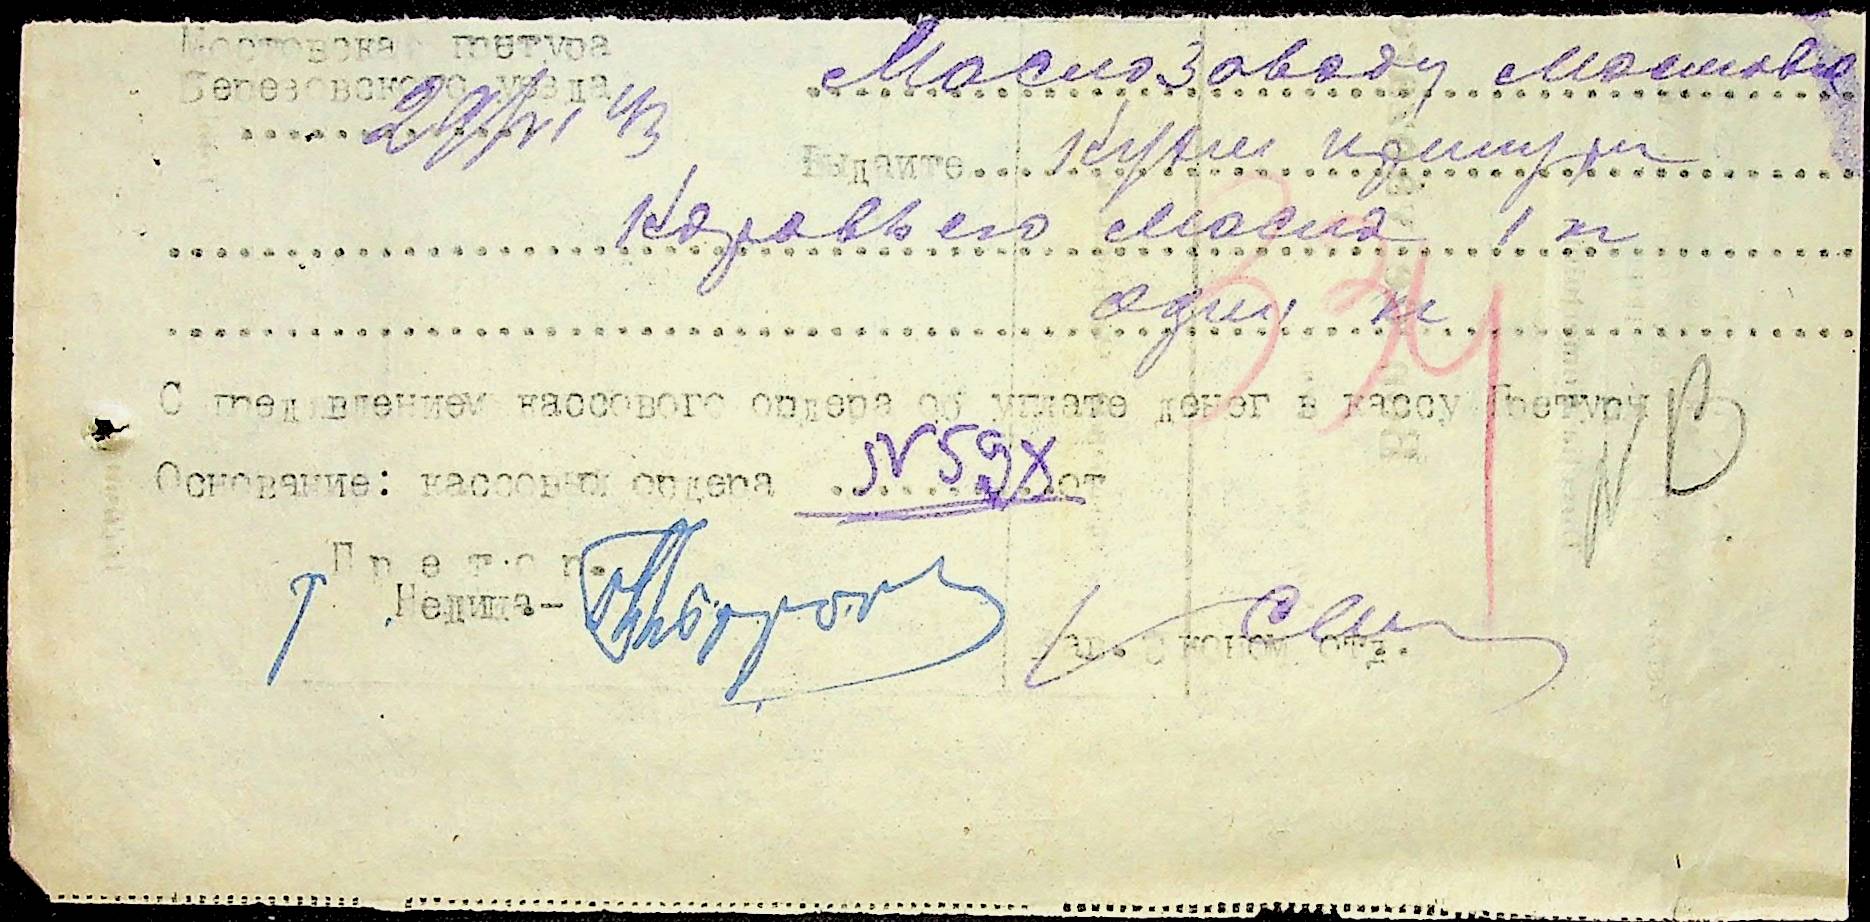 Мостовская претура
Березовского уезда
29/VI 43
Маслозаводу Мостовое
Выдайте
Коровьего масла 1 кг
один кг
334
С пред'явлением кассового ордера об уплате денег в кассу Претуры
Основание: кассовый ордера N 59 от
Претор.
Недина-
Зав. Эконом отд.